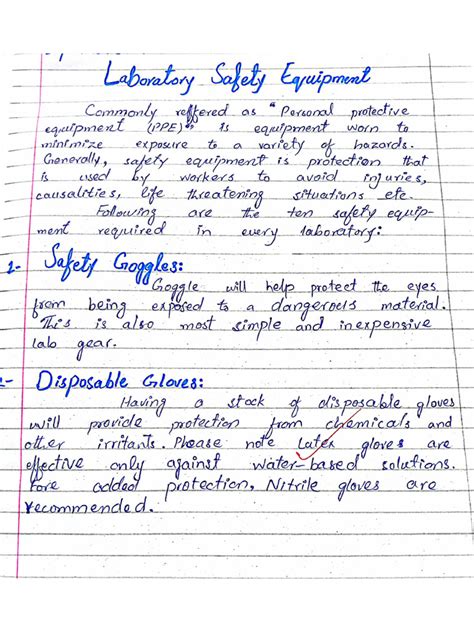 Laboratory Safety Equipment
Commonly reffered as "Personal protective
equipment (PPE)" is equipment worn to
minimize exposure to a variety of hazards.
Generally, safety equipment is protection that
is used by workers to avoid injuries,
causalities, life threatening situations etc.
Following are the ten safety equip-
ment required in every laboratory:
1- Safety Goggles:
Goggle will help protect the eyes
from being exposed to a dangerous material.
This is also most simple and inexpensive
lab gear.
2- Disposable Gloves:
Having a stock of disposable gloves
will provide protection from chemicals and
other irritants. Please note Latex gloves are
effective only against water-based solutions.
Fore added protection, Nitrile gloves are
recommended.